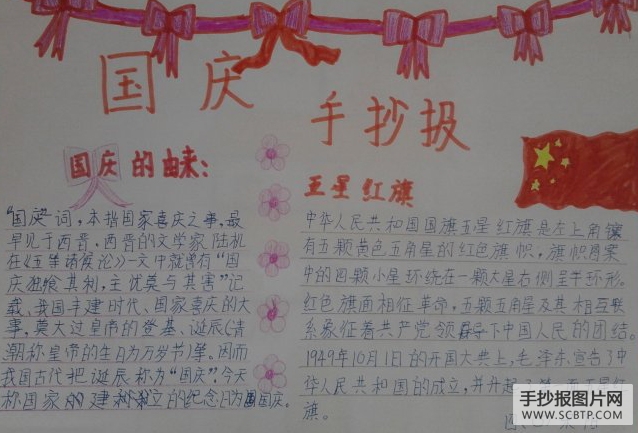 国庆
手抄报
国庆的由来:
"国庆"一词,本指国家喜庆之事,最
早见于西晋。西晋的文学家陆机
在《五等诸侯论》一文中就曾有"国
庆独飨其利,主忧莫与其害"记
载、我国丰建时代、国家喜庆的大
事,莫大过皇帝的登基、诞辰(清
朝称皇帝的生日为万岁节)等。因而
我国古代把诞辰称为"国庆"。今天
称国家建立的纪念日为国庆。
五星红旗
中华人民共和国国旗五星红旗是左上角镶
有五颗黄色五角星的红色旗帜,旗帜图案
中的四颗小星环绕在一颗大星右侧呈半环形。
红色旗面相征革命,五颗五角星及其相互联
系象征着共产党领导下中国人民的团结。
1949年10月1日的开国大共上,毛泽东宣告了中
华人民共和国的成立,并升起了第一面五星红
旗。
手抄报图片网
WWW.SCBTP.COM